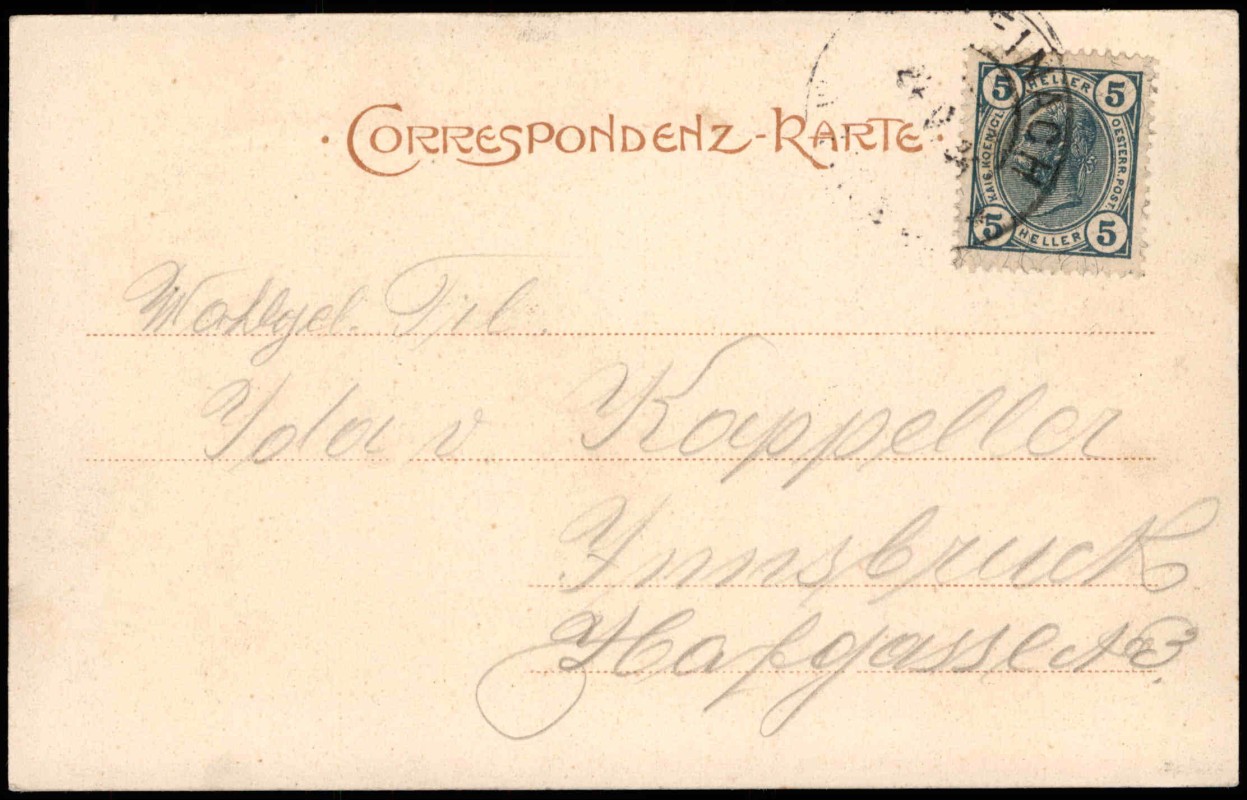 · CORRESPONDENZ-KARTE ·
5 HELLER 5
KAIS. KOENIGL. OESTERR. POST.
5 HELLER 5
Wohlgeb.
Ida v Kappeller
Innsbruck
Hofgasse № 3